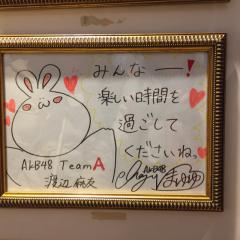 みんなー!
楽しい時間を
過ごして
くださいねっ
AKB48 TeamA
渡辺 麻友
AKB48
まゆゆ